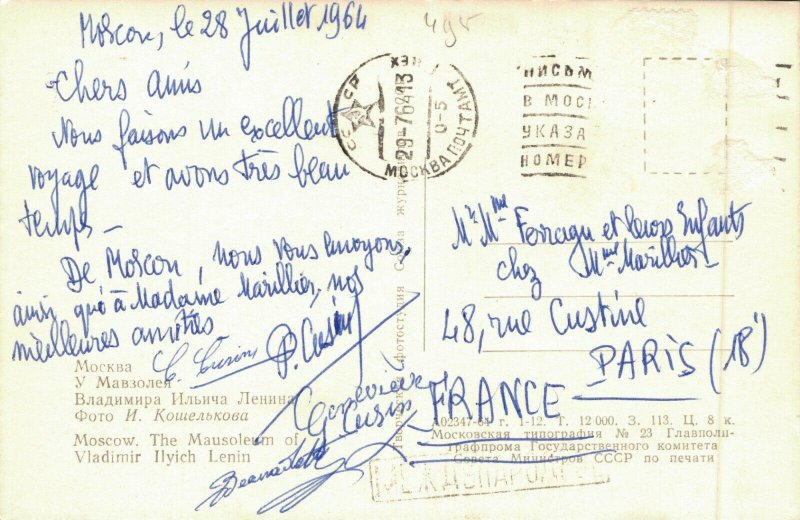 Moscou, le 28 Juillet 1964
Chers amis
Nous faisons un excellent
voyage et avons très beau
temps.
De Moscou, nous vous envoyons,
ainsi qu'à Madame Marillier, nos
meilleures amitiés.
P. Cusin
Geneviève
Cusin
Bernadette
495
СССР
29-7-64 13
0-5
МОСКВА ПОЧТАМТ
ПИСЬМ
В МОС
УКАЗА
НОМЕР
Mr Mme Ferragu et leurs Enfants
chez Mme Marillier
48, rue Custine
PARIS (18)
FRANCE
Москва
У Мавзолея
Владимира Ильича Ленина
Фото И. Кошелькова
Moscow. The Mausoleum of
Vladimir Ilyich Lenin
А02347-64 г. 1-12. Т. 12 000. З. 113. Ц. 8 к.
Московская типография № 23 Главполи-
графпрома Государственного комитета
Совета Министров СССР по печати